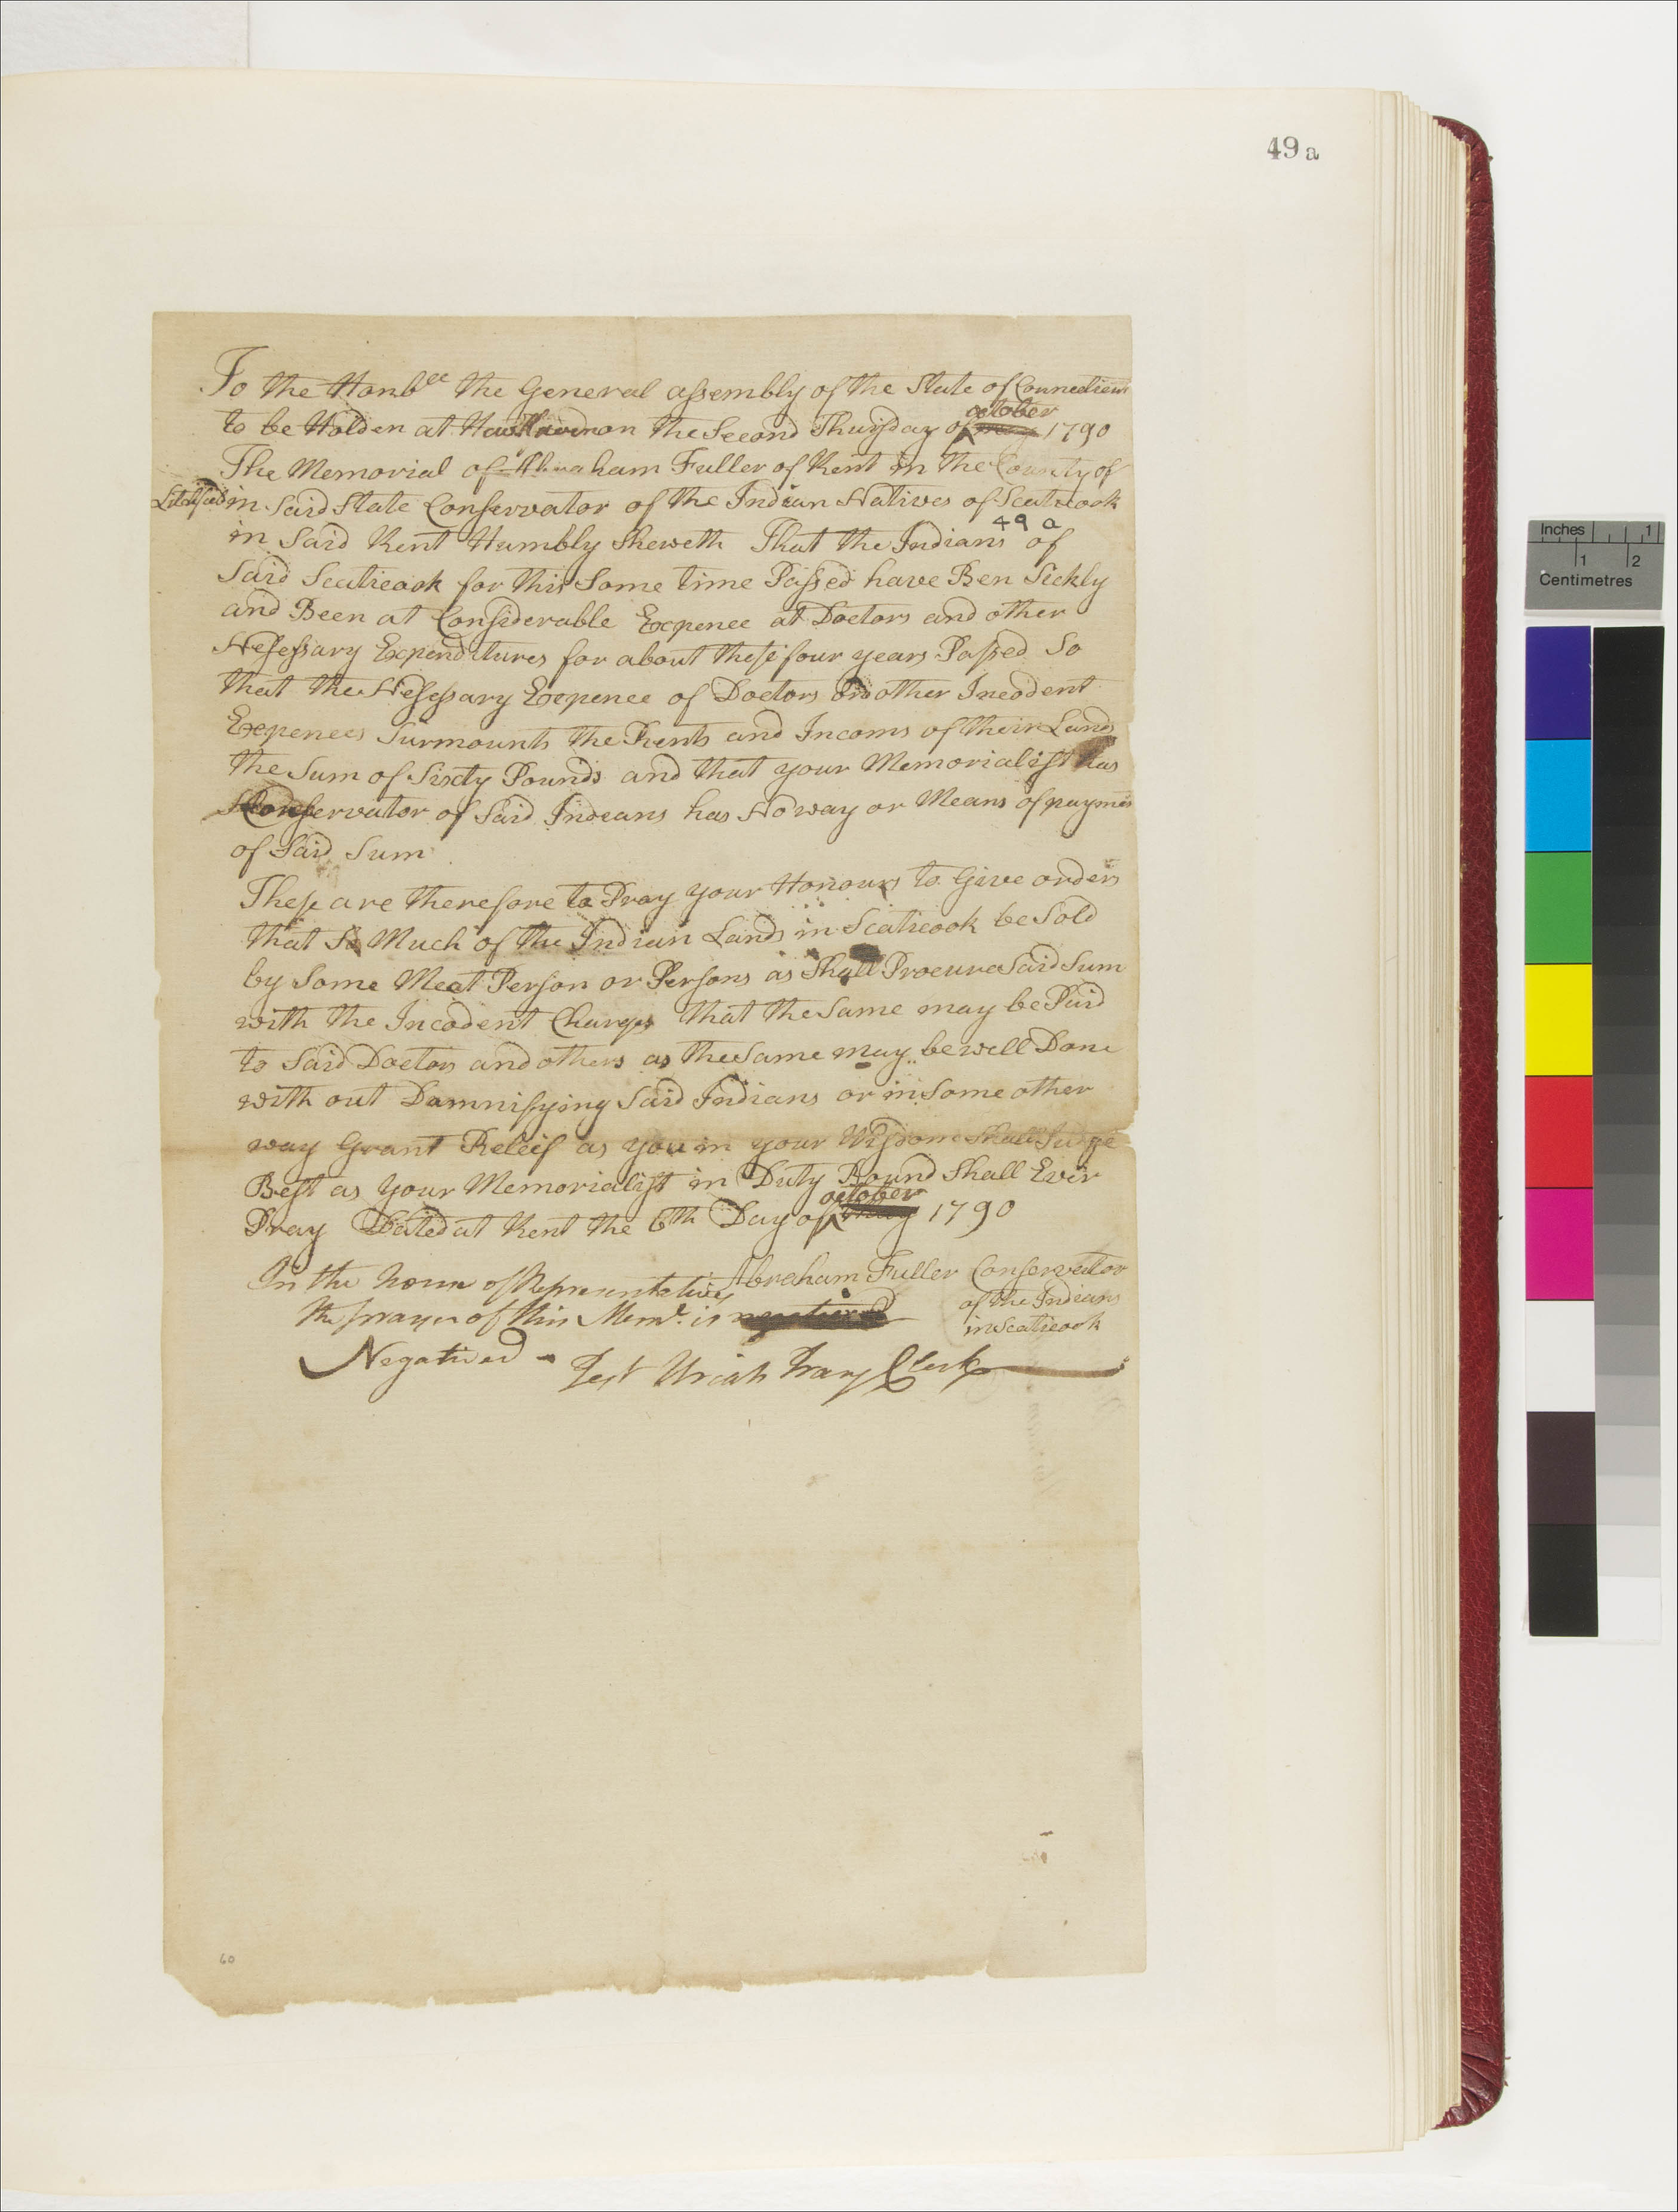 49a
To the Honble the General assembly of the State of Connecticut
to be Holden at New Haven on the Second Thursday of october 1790
The Memorial of Abraham Fuller of Kent in the County of
Litchfield in Said State Conservator of the Indian Natives of Scaticook
49 a
in Said Kent Humbly Sheweth That the Indians of
Said Scaticook for this Some time Passed have Ben Sickly
and Been at Considerable Expence at Doctors and other
Nesessary Expenditures for about these four years Passed So
that the Nesessary Expence of Doctors and other Incodent
Expences Surmounts the Rents and Incoms of their Lands
the Sum of Sixty Pounds and that your Memorialist has
Conservator of Said Indeans has No way or Means of payment
of Said Sum
These are therefore to Pray your Honours to Give orders
that So Much of the Indian Lands in Scaticook be Sold
by Some Meet Person or Persons as Shall Procure Said Sum
with the Incodent Charges that the Same may be Paid
to Said Doctors and others as the Same may be well Done
with out Damnifying Said Indians or in Some other
way Grant Releif as you in your Wisdom Shall Judge
Best as your Memorialist in Duty Bound Shall Ever
Pray Dated at Kent the 6th Day of october 1790
Abraham Fuller Conservator
of the Indians
in Scaticook
In the House of Representatives
the prayer of this Meml. is
Negatived - Test Uriah Tracy Clerk
60